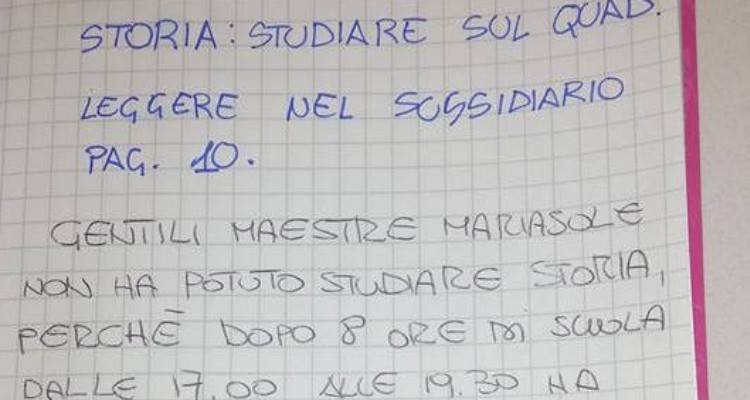 STORIA: STUDIARE SUL QUAD.
LEGGERE NEL SUSSIDIARIO
PAG. 10.
GENTILI MAESTRE MARIASOLE
NON HA POTUTO STUDIARE STORIA,
PERCHÈ DOPO 8 ORE DI SCUOLA
DALLE 17.00 ALLE 19.30 HA